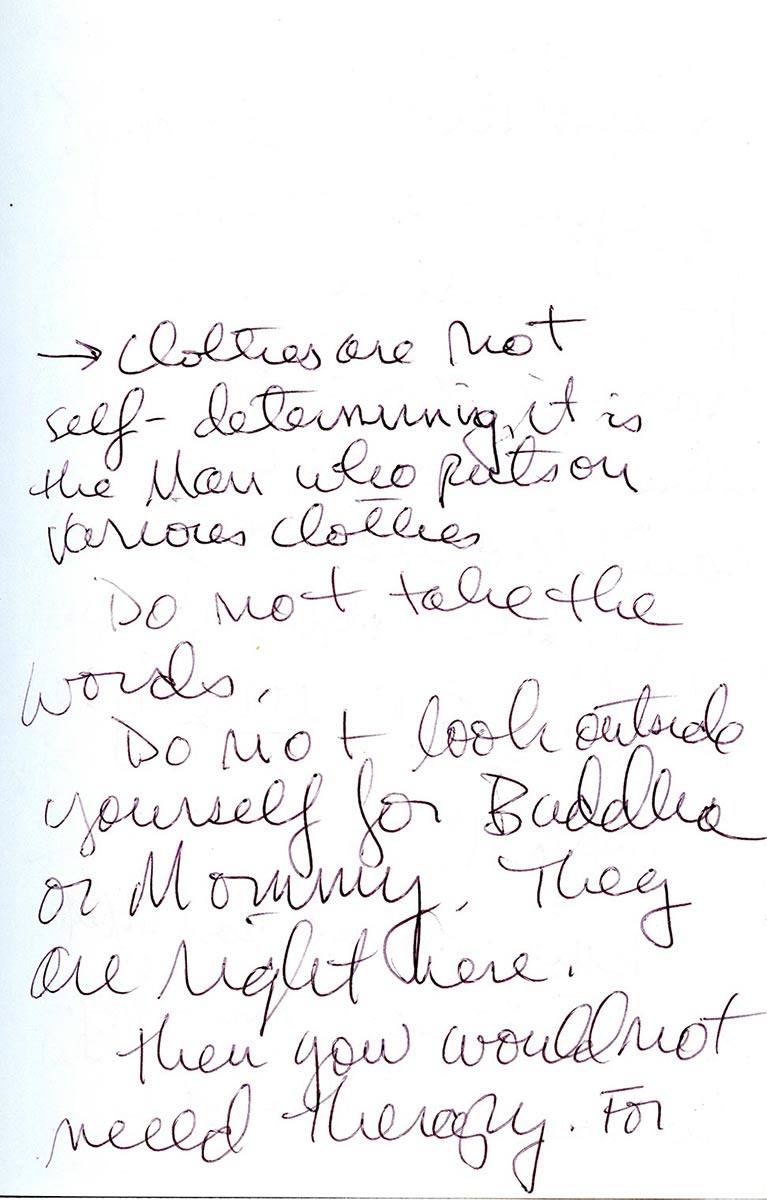 → Clothes are not
self-determining, it is
the Man who puts on
various clothes
Do not take the
words.
Do not look outside
yourself for Buddha
or Mommy. They
are right here.
Then you would not
need therapy. For